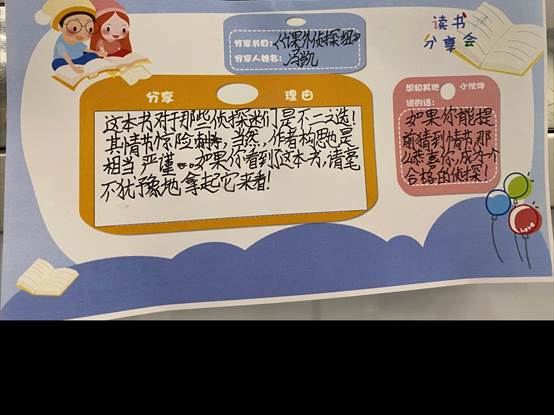 读书
分享会
分享书目：《课外侦探组》
分享人姓名：冯凯
分享 理由
这本书对于那些侦探迷们是不二之选！
其情节惊险刺棒，当然，作者构思也是
相当严谨。如果你看到了这本书，请毫
不犹豫地拿起它来看！
想和其他小伙伴
说的话：
如果你能提
前猜到情节，那
么恭喜你，成为一个
合格的侦探！
Love